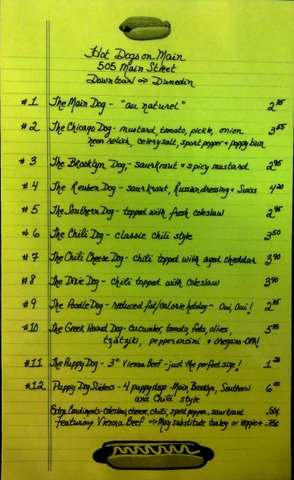 Hot Dogs on Main
505 Main Street
Downtown Dunedin
#1 The Main Dog - "au naturel"
#2 The Chicago Dog - mustard, tomato, pickle, onion 3
neon relish, celery salt, sport pepper & poppy bun
#3 The Brooklyn Dog - saurkraut & spicy mustard
#4 The Reuben Dog - saurkraut, Russian dressing & Swiss 4
#5 The Southern Dog - topped with fresh coleslaw
#6 The Chili Dog - classic chili style 3 50
#7 The Chili Cheese Dog - chili topped with aged cheddar
#8 The Dixie Dog - chili topped with coleslaw
#9 The Poodle Dog - reduced fat/calorie hotdog - Oui, Oui!
#10 The Greek Hound Dog - cucumber, tomato, feta, olives,
tzatziki, pepperoncini & oregano - OPA!
#11 The Puppy Dog - 3" Vienna Beef - just the perfect size! 1
#12 Puppy Dog Sliders - 4 puppy dogs - Main, Brooklyn, Southern 6
and Chili style
Extra Condiments - coleslaw, cheese, chili, sport pepper, saurkraut .50¢
Featuring Vienna Beef May substitute turkey or veggie + .75¢